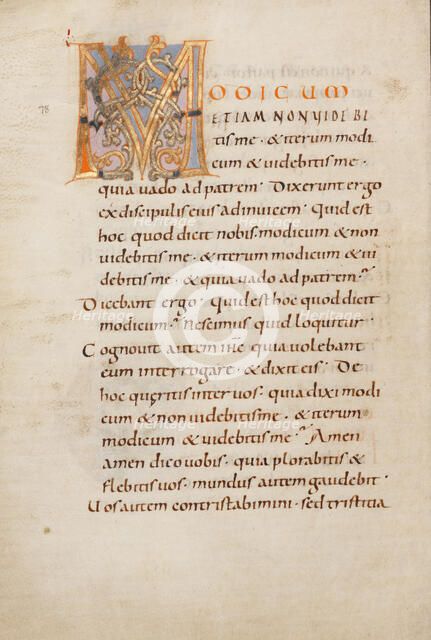 MODICUM
ETIAM NON VIDEBI
tis me · & iterum modi
cum & videbitis me ·
quia vado ad patrem · Dixerunt ergo
ex discipulis eius adinvicem · Quid est
hoc quod dicit nobis · modicum & non
videbitis me · & iterum modicum & vi
debitis me · & quia vado ad patrem ?
Dicebant ergo · Quid est hoc quod dicit
modicum ? Nescimus quid loquitur ·
Cognovit autem ihs quia volebant
eum interrogare · & dixit eis · De
hoc queritis inter vos · quia dixi modi
cum & non videbitis me · & iterum
modicum & videbitis me ? Amen
amen dico vobis · quia plorabitis &
flebitis vos · mundus autem gaudebit ·
Vos autem contristabimini · sed tristitia
78
Heritage
Heritage
Heritage
Heritage
Heritage
Heritage